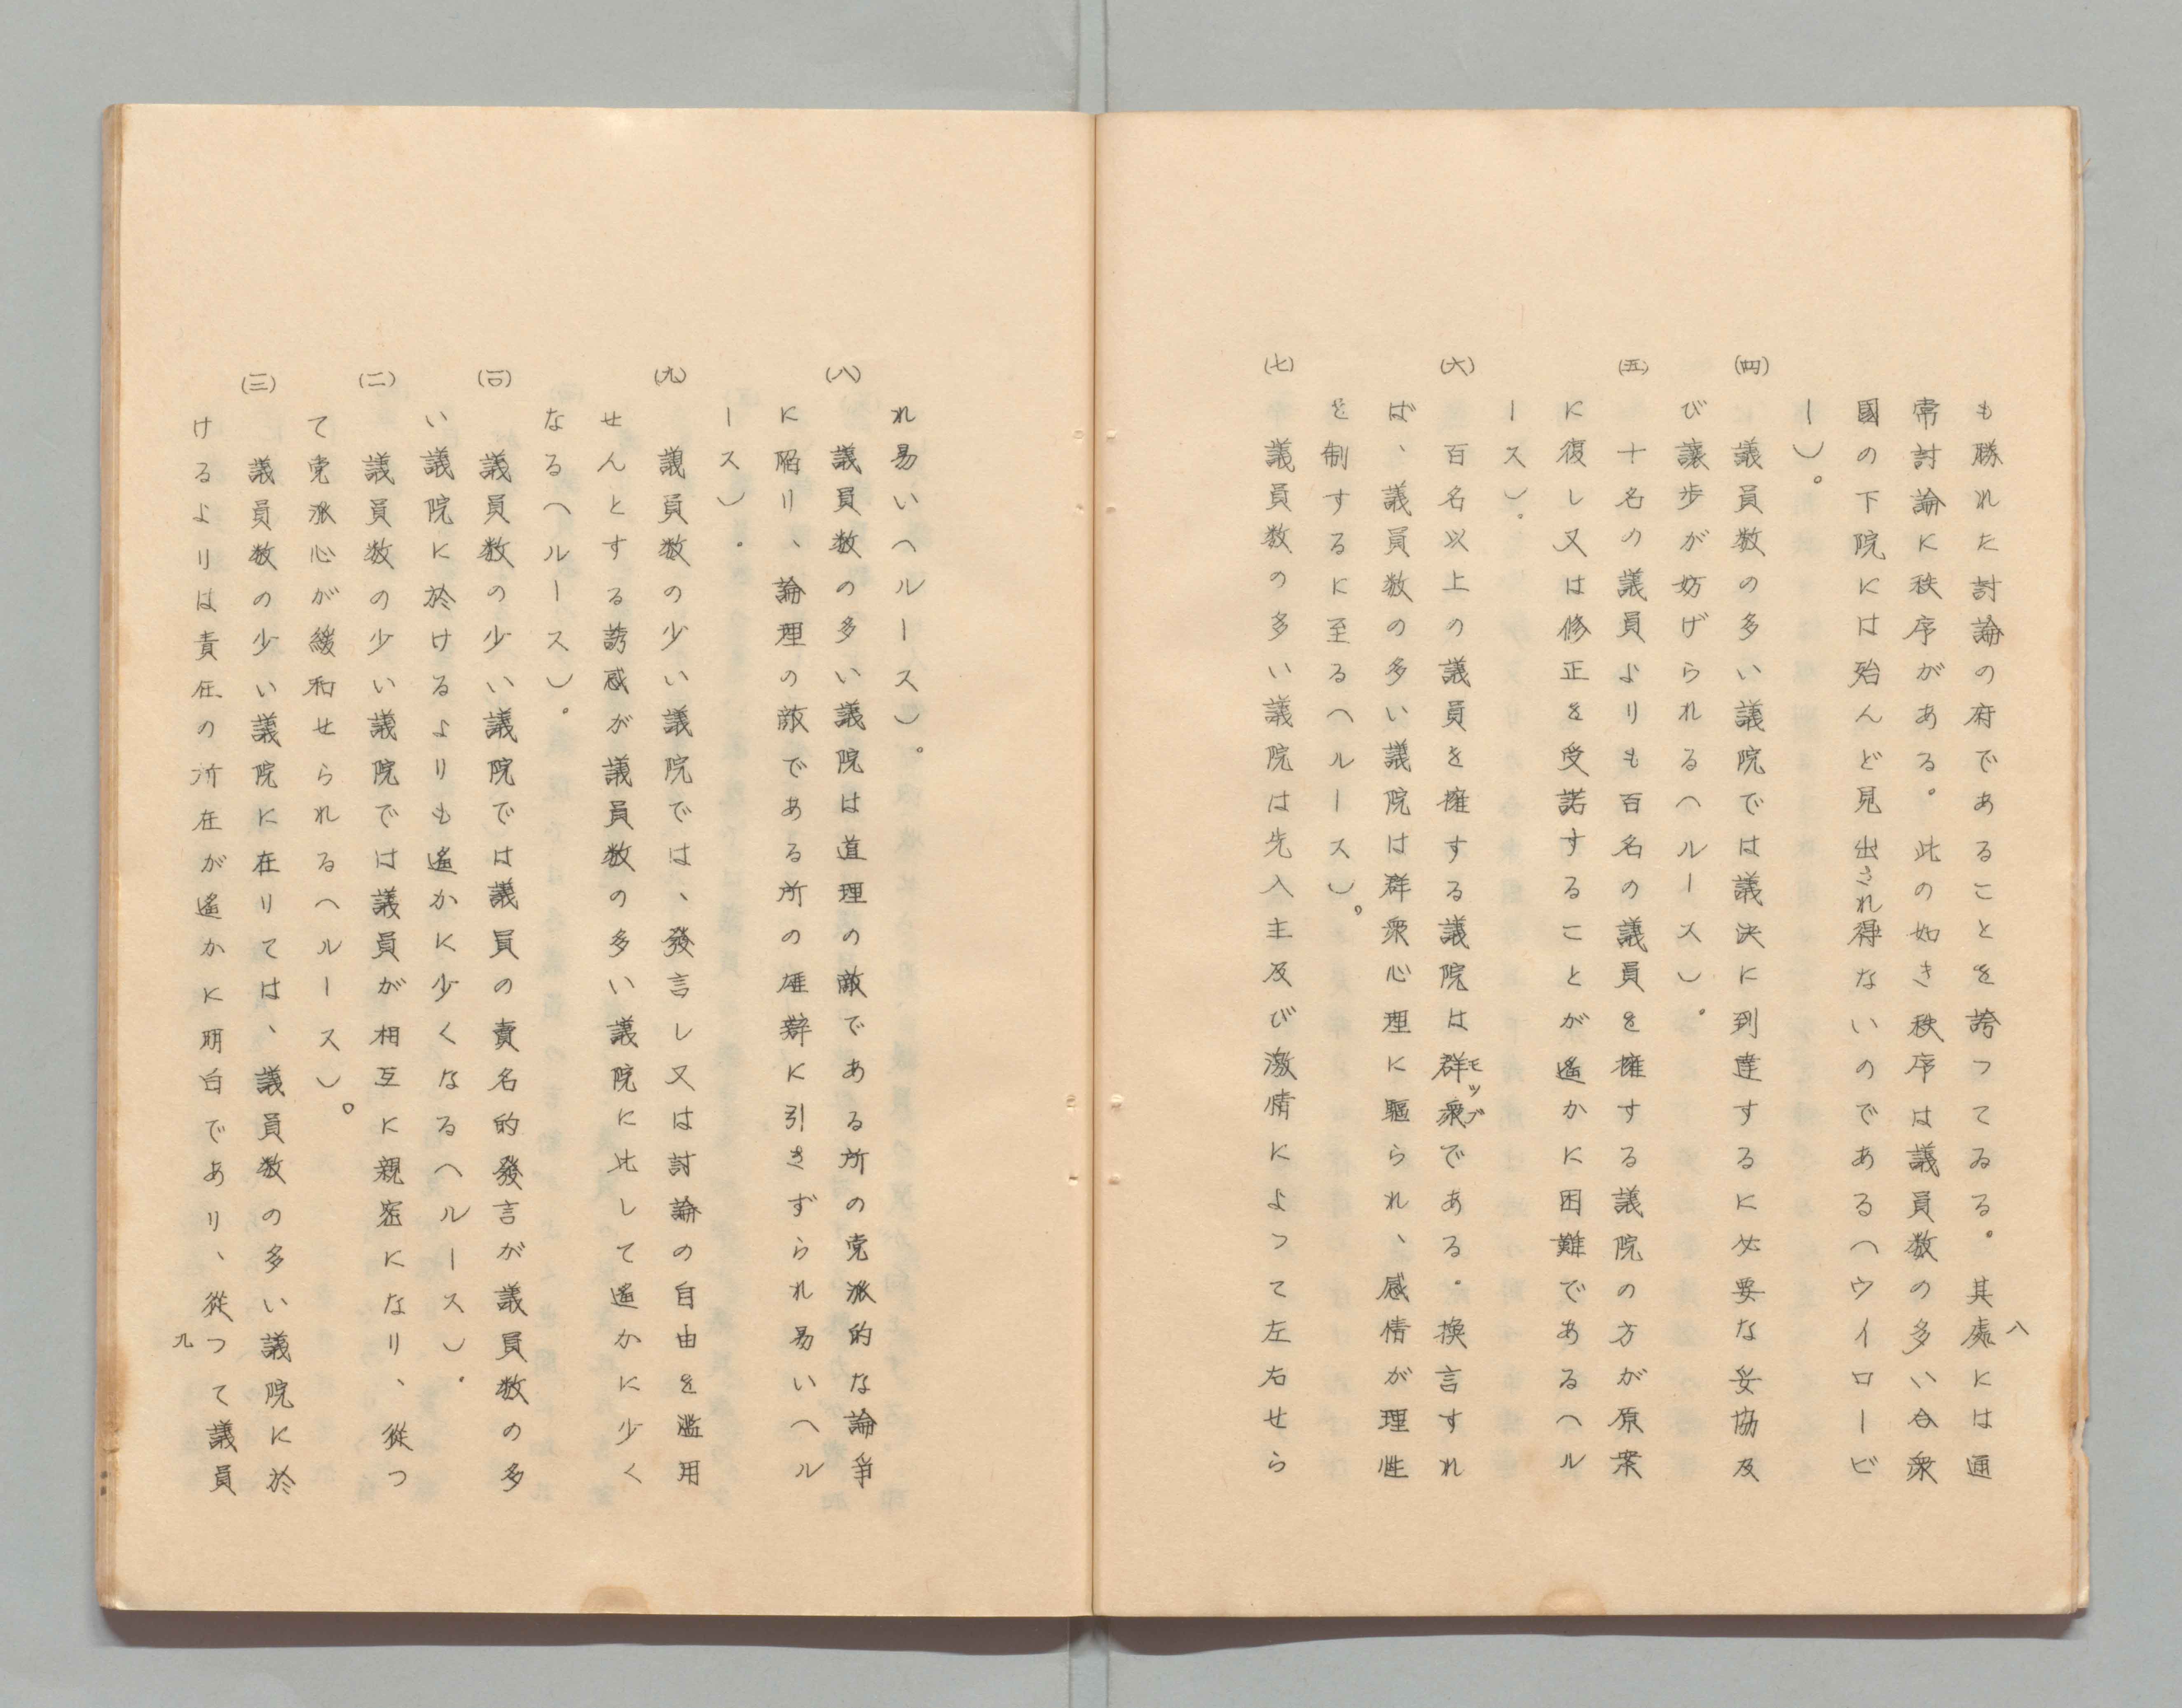 八
も勝れた討論の府であることを誇つてゐる。其處には通
常討論に秩序がある。此の如き秩序は議員数の多い合衆
國の下院には殆んど見出され得ないのである（ウイロービ
ー）。
(四)　議員数の多い議院では議決に到達するに必要な妥協及
び讓歩が妨げられる（ルース）。
(五)　十名の議員よりも百名の議員を擁する議院の方が原案
に復し又は修正を受諾することが遙かに困難である（ル
ース）。
(六)　百名以上の議員を擁する議院は群衆モッブである。換言すれ
ば、議員数の多い議院は群衆心理に驅られ、感情が理性
を制するに至る（ルース）。
(七)　議員数の多い議院は先入主及び激情によつて左右せら
れ易い（ルース）。
(八)　議員数の多い議院は道理の敵である所の党派的な論爭
に陥り、論理の敵である所の雄辯に引きずられ易い（ル
ース）。
(九)　議員数の少い議院では、發言し又は討論の自由を濫用
せんとする誘惑が議員数の多い議院に比して遙かに少く
なる（ルース）。
(一〇)　議員数の少い議院では議員の賣名的發言が議員数の多
い議院に於けるよりも遙かに少くなる（ルース）。
(二)　議員数の少い議院では議員が相互に親密になり、從つ
て党派心が緩和せられる（ルース）。
(三)　議員数の少い議院に在りては、議員数の多い議院に於
けるよりは責任の所在が遙かに明白であり、從つて議員
九